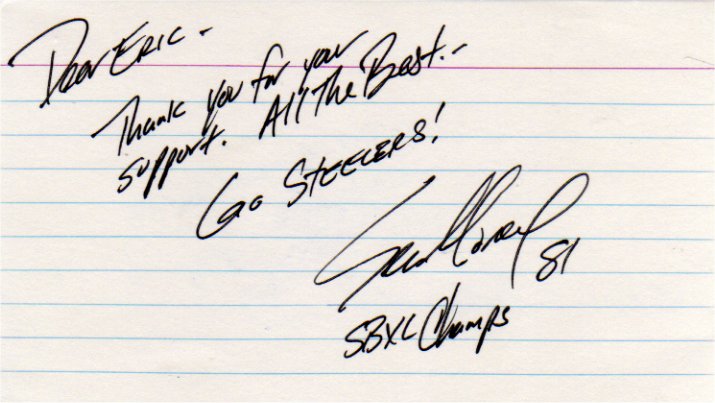 Dear Eric -
Thank you for your
support. All The Best.-
Go STEELERS!
Sean Morey 81
SBXL Champs